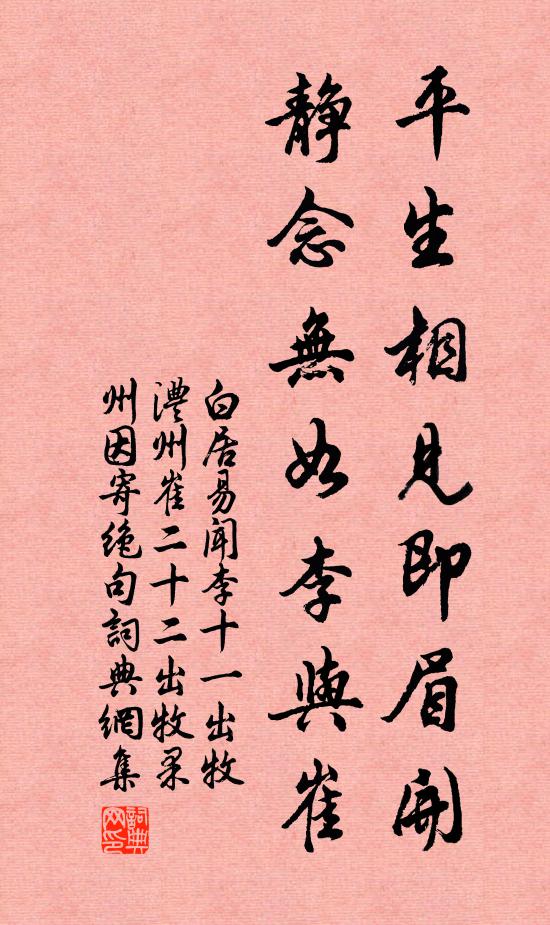 平生相見即眉開
靜念無如李與崔
白居易聞李十一出牧
澧州崔二十二出牧果
州因寄絶句詞典網集
詞典网印